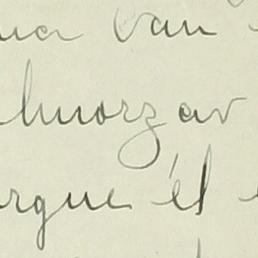 na van
lmorzar
rque él